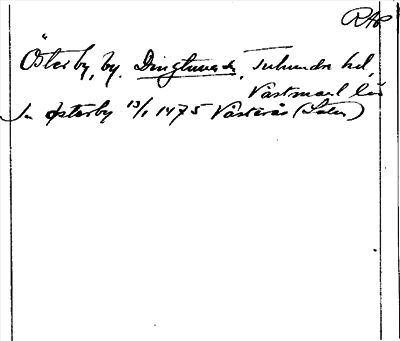 RAP
Österby, by. Dingtuna sn, Tuhundra hd,
Västmanl. län
In österby 13/1 1475 Västerås